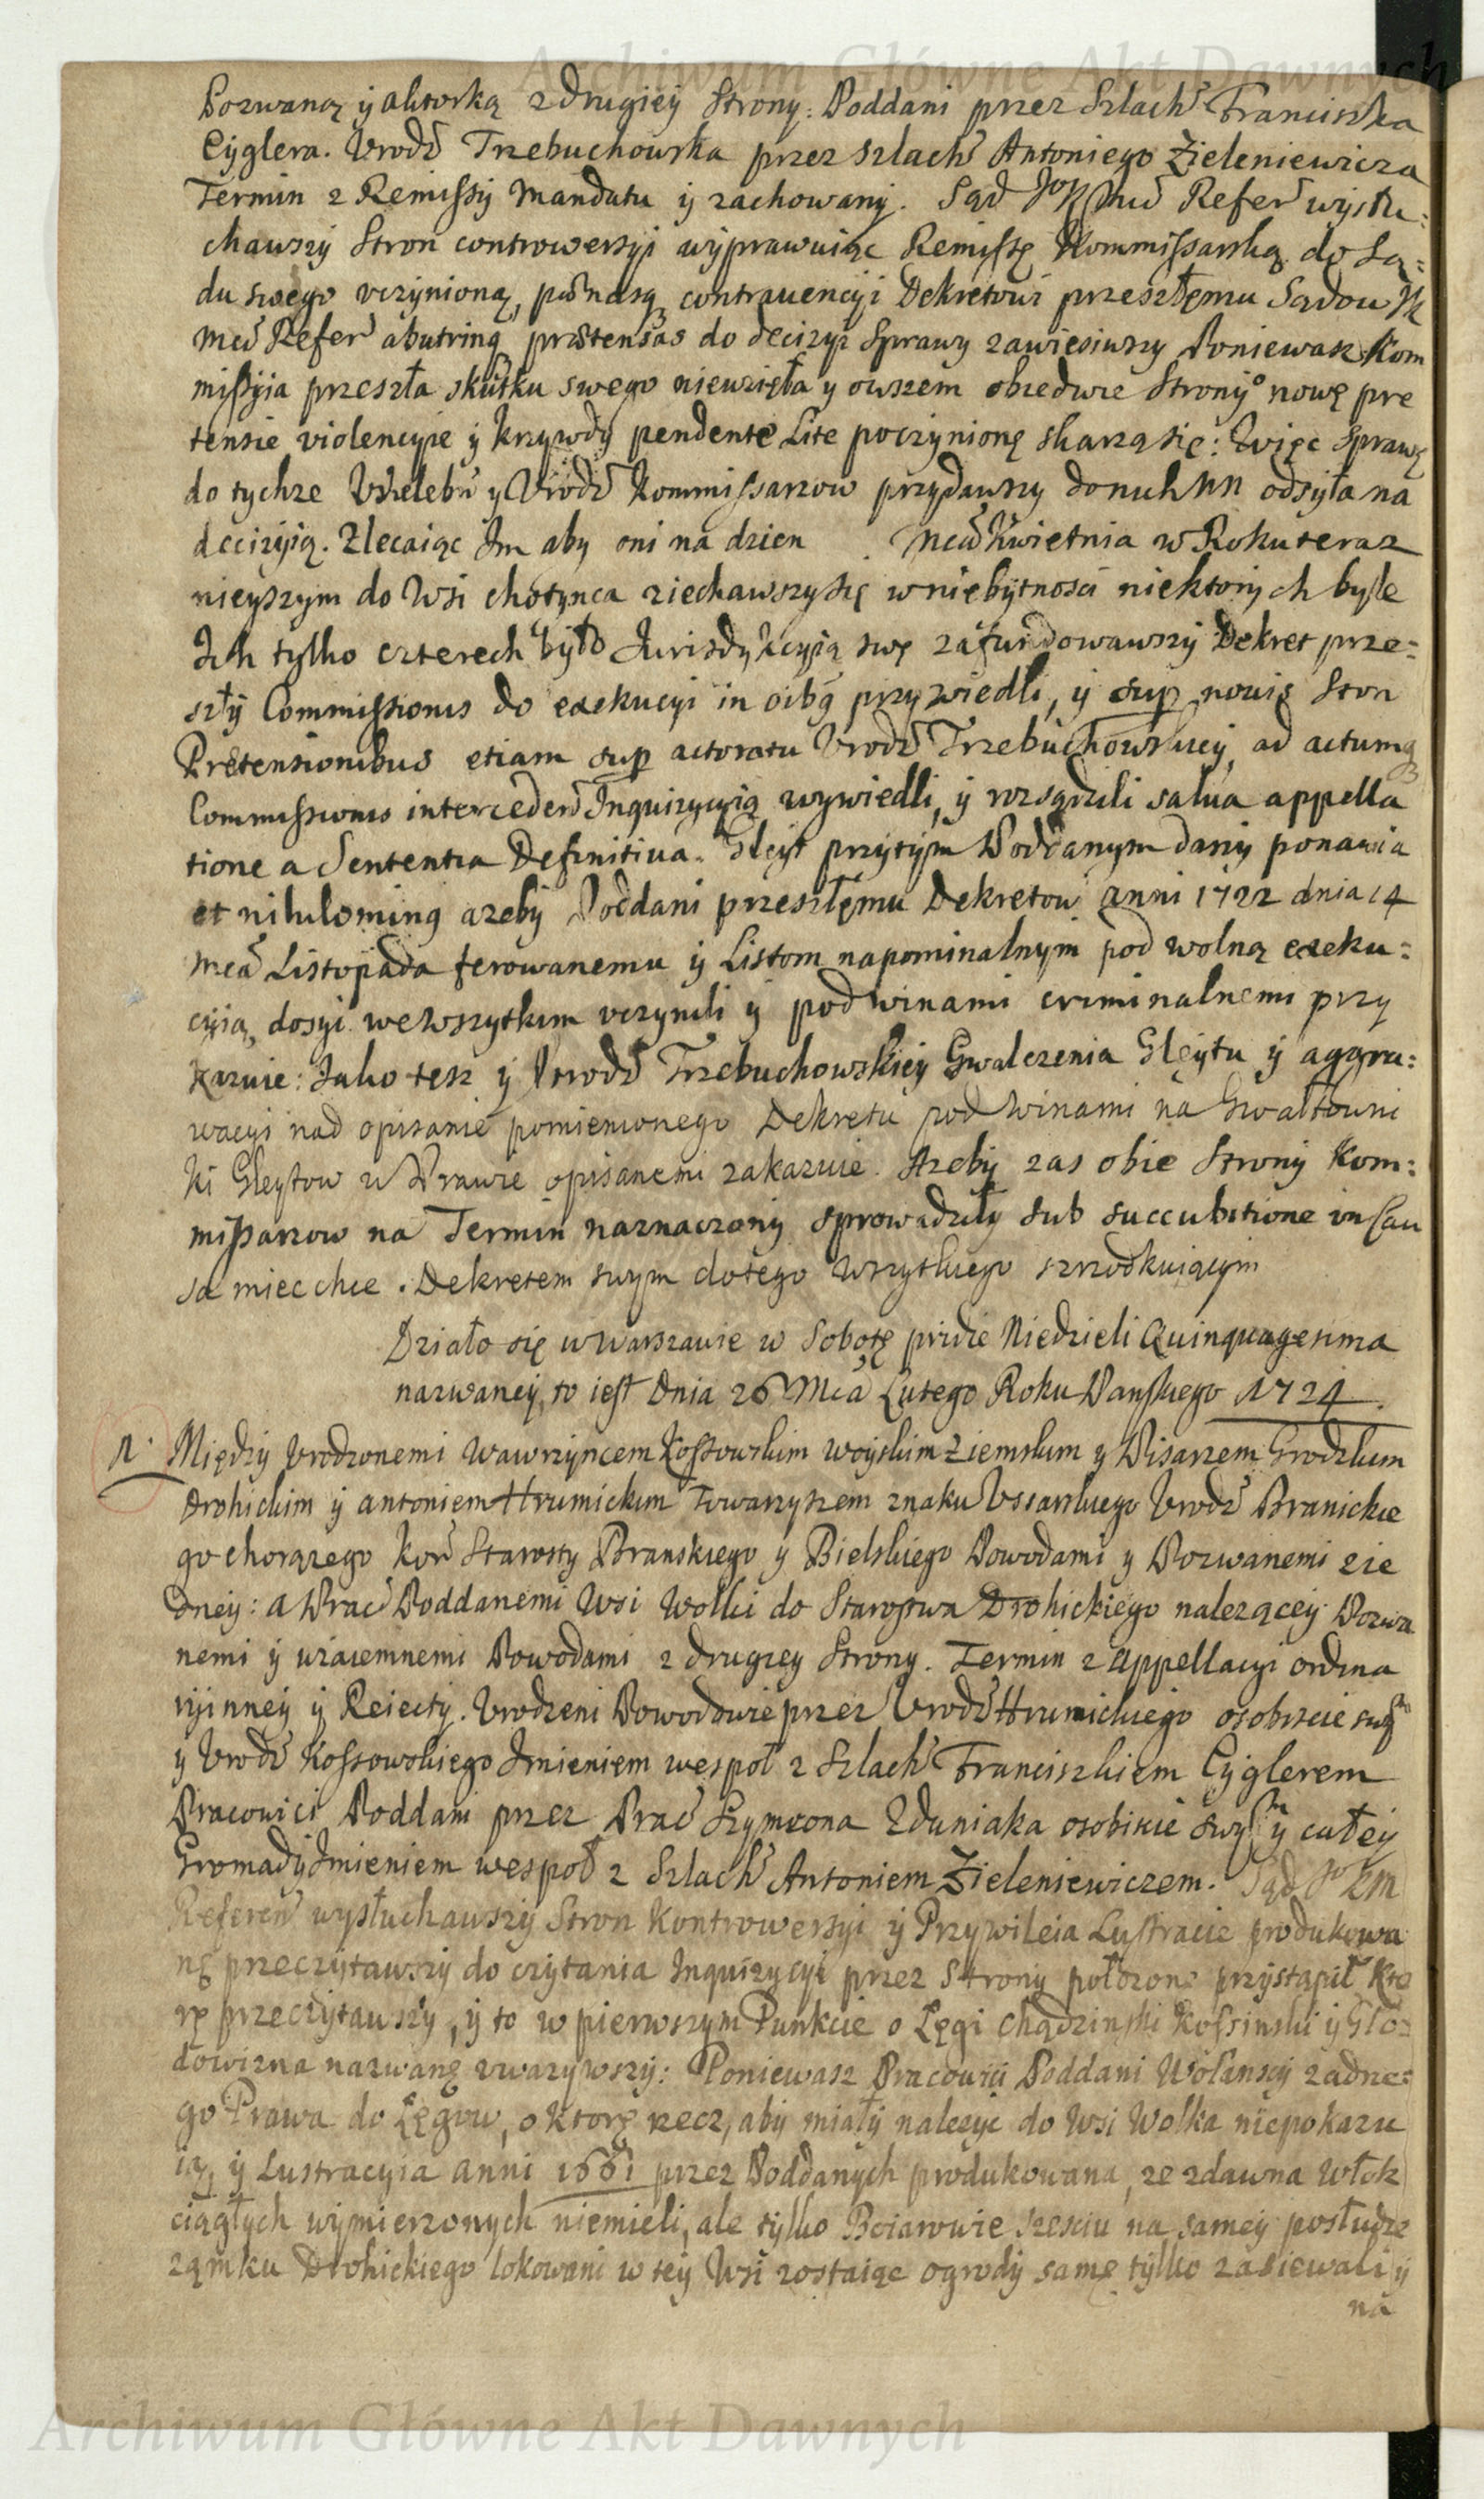 Archiwum Główne Akt Dawnych
Pozwaną ÿ aktorką z drugieÿ Strony: Poddani przez Szlach Franciszka
Cyglera. Vrodz Trzebuchowska przez szlach Antoniego Zieleniewicza
Termin z Remissÿ Mandatu ÿ zachowanÿ. Sąd Refer wÿsłu=
chawszÿ Stron controwersyi wÿprawuiąc Remissę Kommissarską do Są=
du swego vczÿnioną, contrauencÿi Dekretowi przeszłęmu Sądow
Refer abutrinq prætensas do decizyi Sprawy zawiesiwszy Poniewasz Kom
missÿia przeszła skutku swego niewzięła y owszem obiedwie Stronÿ nowę pre
tensie violencÿie ÿ krzÿwdÿ pendente Lite poczÿnionę skarzą się: Więc Sprawę
do tychze Wielebn y Vrodz Kommissarzow przÿdawszy do nich NN odsÿła na
decizÿią. Zlecaiąc Im aby oni na dzien . Mca Kwietnia w Roku teraz
nieÿszym do Wsi chotÿnca ziechawszy się w niebÿtnosci niektorÿch byle
Ich tylko czterech bÿło Jurisdykcyią swę zafundowawszÿ Dekret prze=
szłÿ Commissionis do exekucyi in oibq przywiedli, ÿ sup nouis Ston
Prætensionibus etiam sup actoratu Vrodz Trzebuchowskieÿ, ad actumq
Commissionis interceden Inquizycyią wywiedli, ÿ rozsądzili salua appella
tione a Sententia Definitiua. Gleÿt przÿtÿm Poddanym danÿ ponawia
et nihilominq azebÿ Poddani przeszłęmu Dekretowi anni 1722 dnia 14
Mca Listopada ferowanemu ÿ Listom napominalnÿm pod wolną exeku=
cÿią, dosyi wewszytkim vczynili ÿ pod winami criminalnemi przy
kazuie: Jako tesz ÿ Vrodz Trzebuchowskieÿ Gwalczenia Gleytu ÿ aggra=
wacyi nad opisanie pomienionego Dekretu pod winami na Gwałtowni
ki Gleytow w Prawie opisanemi zakazuie. Azebÿ zas obie Stronÿ Kom=
missarzow na Termin naznaczonÿ sprowadziłÿ sub succubitione in Cau
sa miec chce. Dekretem swym dotego wszytkiego szrzodkuiącÿm
Działo się w Warszawie w Sobotę pridie Niedzieli Quinquagesima
nazwaneÿ, to iest Dnia 26 Mca Lutego Roku Panskiego 1724.
Międzÿ Vrodzonemi Wawrzÿncem Kossowskim woÿskim Ziemskim y Pisarzem Grodzkim
Drohickim ÿ antoniem Hrumickim Towarzyszem znaku Vssarskiego Vrodz Branickie
go chorązego Kor Starosty Branskiego y Bielskiego Powodami y Pozwanemi zie
dneÿ: a Prac Poddanemi Wsi Wolki do Starostwa Drohickiego nalezącey Pozwa
nemi ÿ wzaiemnemi Powodami z drugiey Strony. Termin z appellacyi ordina
rÿinneÿ ÿ Reiectÿ. Vrodzeni Powodowie przez Vrodz Hrumickiego osobiscie
y Vrodz Kossowskiego Imieniem wespoł z Szlach Franciszkiem Cyglerem
Pracowici Poddani przez Prac Szymeona Zduniaka osobiscie ÿ całeÿ
Gromadÿ Imieniem wespoł z Szlach Antoniem Zieleniewiczem. Sąd
Referen wysłuchawszÿ Stron Kontrowersyi ÿ Przywileia Lustracie produkowa
nę przeczÿtawszÿ do czÿtania Inquizycyi przez Stronÿ połozone przÿstąpił Kto
rę przeczÿtawszÿ, ÿ to w pierwszym Punkcie o Łęgi chądzinski Kossinski ÿ Gło=
dowizna nazwanę vwazywszÿ: Poniewasz Pracowici Poddani Wolanscÿ zadne=
go Prawa do Łęgow, o ktorę rzecz, abÿ miałÿ nalezyc do Wsi Wolka niepokazu
ią, ÿ Lustracyia anni 1661 przez Poddanych produkowana, ze zdawna włok
ciągłych wÿmierzonych niemieli, ale tÿlko Boiarowie szesciu na sameÿ posłudze
ząmku Drohickiego lokowani w teÿ Wsi zostaiąc ogrodÿ samę tÿlko zasiewali ÿ
na
Archiwum Główne Akt Dawnych